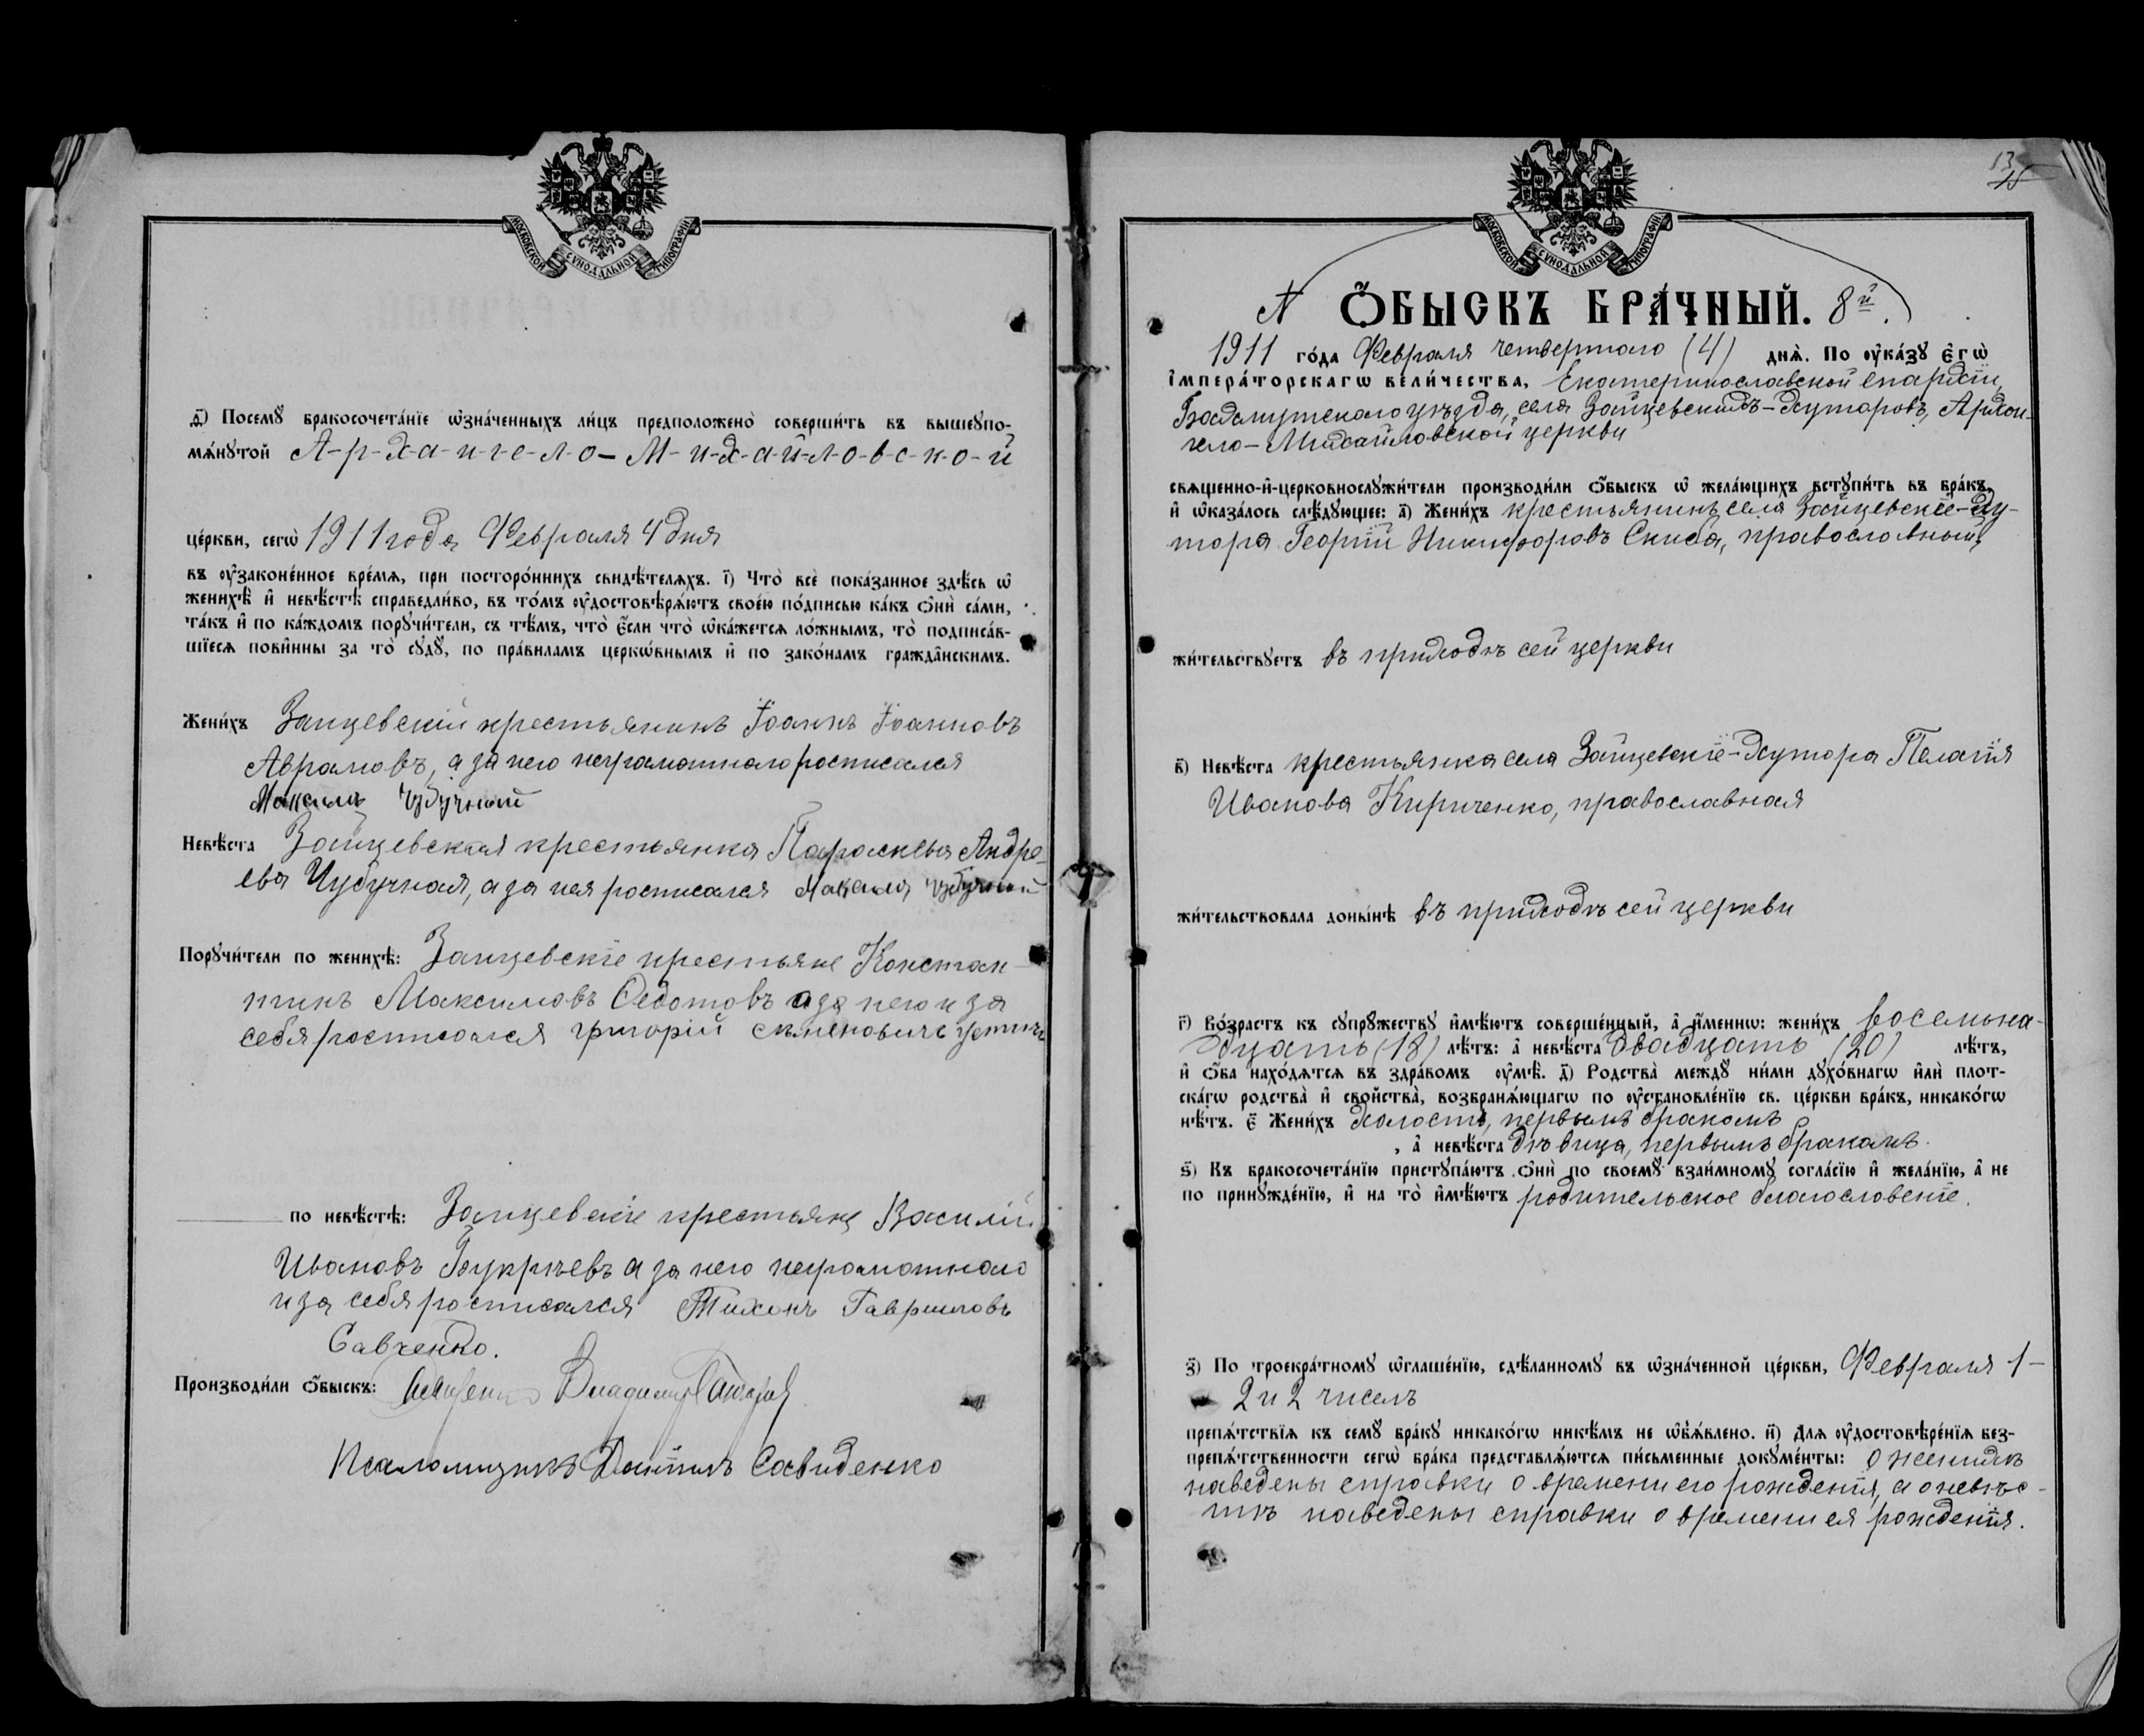 МОСКОВСКОЙ СѴНОДАЛЬНОЙ ТИПОГРАФІИ
д҃) Посемꙋ бракосочета́нїе ѡ҆зна́ченныхъ ли́цъ предположено̀ соверши́ть въ вышеꙋпо-
мѧ́нꙋтой А-р-х-а-н-г-е-л-о-М-и-х-а-й-л-о-в-с-к-о-й
це́ркви, сегѡ̀ 1911 года Февраля 4 дня
въ ᲂу҆законе́нное вре́мѧ, при посторо́ннихъ свидѣ́телѧхъ. і҃) Что̀ всѐ пока́занное здѣ́сь ѡ҆
женихѣ̀ и҆ невѣ́стѣ справедли́во, въ то́мъ ᲂу҆достовѣрѧ́ютъ свое́ю по́дписью ка́къ ѻ҆нѝ са́ми,
та́къ и҆ по ка́ждомъ порꙋчи́тели, съ тѣ́мъ, что̀ є҆́сли что̀ ѡ҆ка́жетсѧ ло́жнымъ, то̀ подписа́в-
шїесѧ пови́нны за то̀ сꙋдꙋ̀, по пра́виламъ церко́внымъ и҆ по зако́намъ гражда́нскимъ.
Жени́хъ Зайцевскій крестьянинъ Іоаннъ Іоанновъ
Аврамовъ, а за него неграмотнаго росписался
Максимъ Чубучный
Невѣ́ста Зайцевская крестьянка Параскева Андре-
ева Чубучная, а за нея росписался Максимъ Чубучный
Порꙋчи́тели по женихѣ̀: Зайцевскіе крестьяне Констан-
тинъ Максимовъ Федотовъ а за него и за
себя росписался Григорій Семеновичъ
по невѣ́стѣ: Зайцевскіе крестьяне Василій
Ивановъ Букрѣевъ а за него неграмотнаго
и за себя росписался Тихонъ Гавриловъ
Савченко.
Производи́ли ѻ҆́быскъ: Священникъ Владимір
Псаломщикъ Даніилъ Савиденко
13
МОСКОВСКОЙ СѴНОДАЛЬНОЙ ТИПОГРАФІИ
N ѺБЫСКЪ БРА́ЧНЫЙ. 8й.
1911 го́да Февраля четвертаго (4) днѧ̀. По ᲂу҆ка́зꙋ Є҆гѡ̀
І҆мпера́торскагѡ вели́чества, Екатеринославской епархіи,
Бахмутскаго уѣзда, села Зайцевскихъ-Хуторовъ, Архан-
гело-Михайловской церкви
свѧще́нно-и҆-церковнослꙋжи́тели производи́ли ѻ҆́быскъ ѡ҆ жела́ющихъ встꙋпи́ть въ бра́къ,
и҆ ѡ҆каза́лось слѣ́дꙋющее: а҃) Жени́хъ крестьянинъ села Зайцевскіе-Ху-
тора Георгій Никифоровъ Скиба, православный,
жи́тельствꙋетъ въ приходѣ сей церкви
в҃) Невѣ́ста крестьянка села Зайцевскіе-Хутора Пелагія
Иванова Кириченко, православная
жи́тельствовала доны́нѣ въ приходѣ сей церкви
г҃) Во́зрастъ къ сꙋпрꙋ́жествꙋ и҆мѣ́ютъ соверше́нный, а҆ и҆́меннѡ: жени́хъ восемьна-
дцать (18) лѣ́тъ: а҆ невѣ́ста двадцать (20) лѣ́тъ,
и҆ ѻ҆́ба нахо́дѧтсѧ въ здра́вомъ ᲂу҆мѣ̀. д҃) Родства̀ междꙋ ни́ми дꙋхо́внагѡ и҆лѝ плот-
ска́гѡ родства̀ и҆ свойства̀, возбранѧ́ющагѡ по ᲂу҆становле́нїю св. це́ркви бра́къ, никако́гѡ
нѣ́тъ. є҃ Жени́хъ холостъ, первымъ бракомъ
, а҆ невѣ́ста дѣвица, первымъ бракомъ.
ѕ҃) Къ бракосочета́нїю пристꙋпа́ютъ ѻ҆нѝ по своемꙋ̀ взаи́мномꙋ согла́сїю и҆ жела́нїю, а҆ не
по принꙋжде́нїю, и҆ на то̀ и҆мѣ́ютъ родительское благословеніе.
з҃) По троекра́тномꙋ ѡ҆глаше́нїю, сдѣ́ланномꙋ въ ѡ҆зна́ченной це́ркви, Февраля 1-
2 и 2 чиселъ
препѧ́тствїѧ къ семꙋ̀ бра́кꙋ никако́гѡ никѣ́мъ не ѡ҆б̾ѧ́влено. и҃) Длѧ ᲂу҆достовѣре́нїѧ без-
препѧ́тственности сегѡ̀ бра́ка представлѧ́ютсѧ пи́сьменные докꙋме́нты: о женихѣ
наведены справки о времени его рожденія, а о невѣс-
тѣ наведены справки о времени ея рожденія.